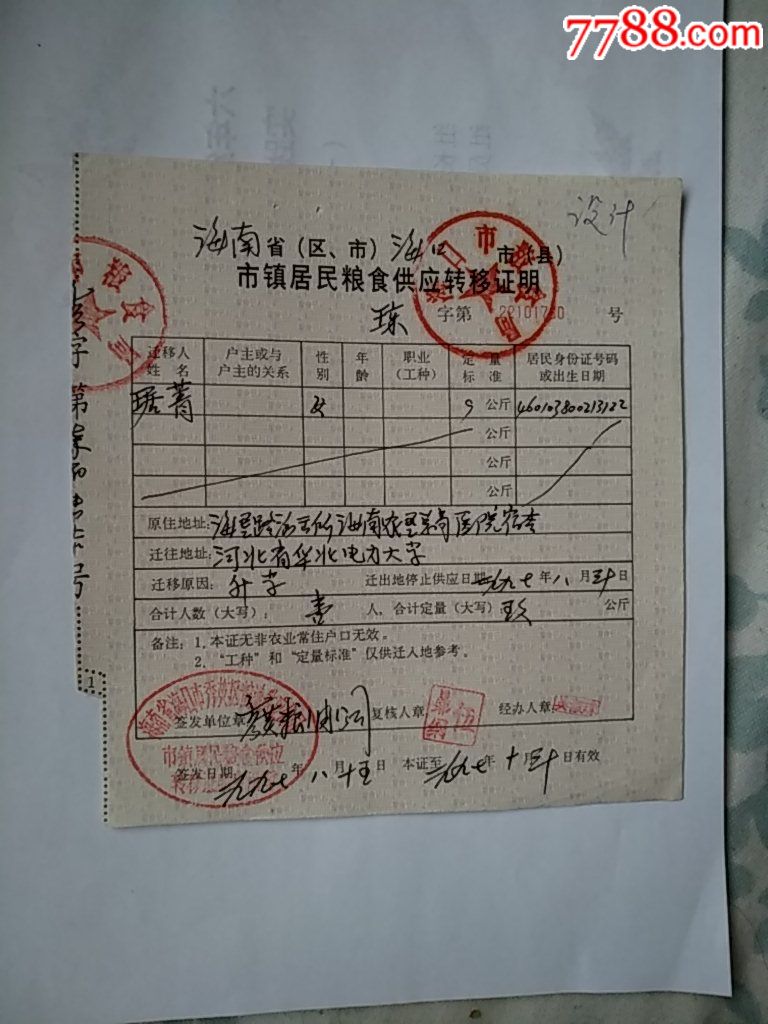 7788.com
设计
海南省（区、市）海口市（县）
市镇居民粮食供应转移证明
琼 字第 22101780 号
迁移人姓名 户主或与户主的关系 性别 年龄 职业（工种） 定量标准 居民身份证号码或出生日期
菁 女 9 公斤 460103800213122
公斤
公斤
公斤
原住地址：海垦路派出所海南农垦 医院宿舍
迁往地址：河北省华北电力大学
迁移原因：升学 迁出地停止供应日期 一九九七年八月三十日
合计人数（大写）：壹 人，合计定量（大写）玖 公斤
备注：1．本证无非农业常住户口无效。
2．“工种”和“定量标准”仅供迁入地参考。
签发单位章 复核人章 经办人章
市镇居民粮食供应
签发日期 一九九七年八月十五日 本证至一九九七年十月三十日有效
字第
号
1